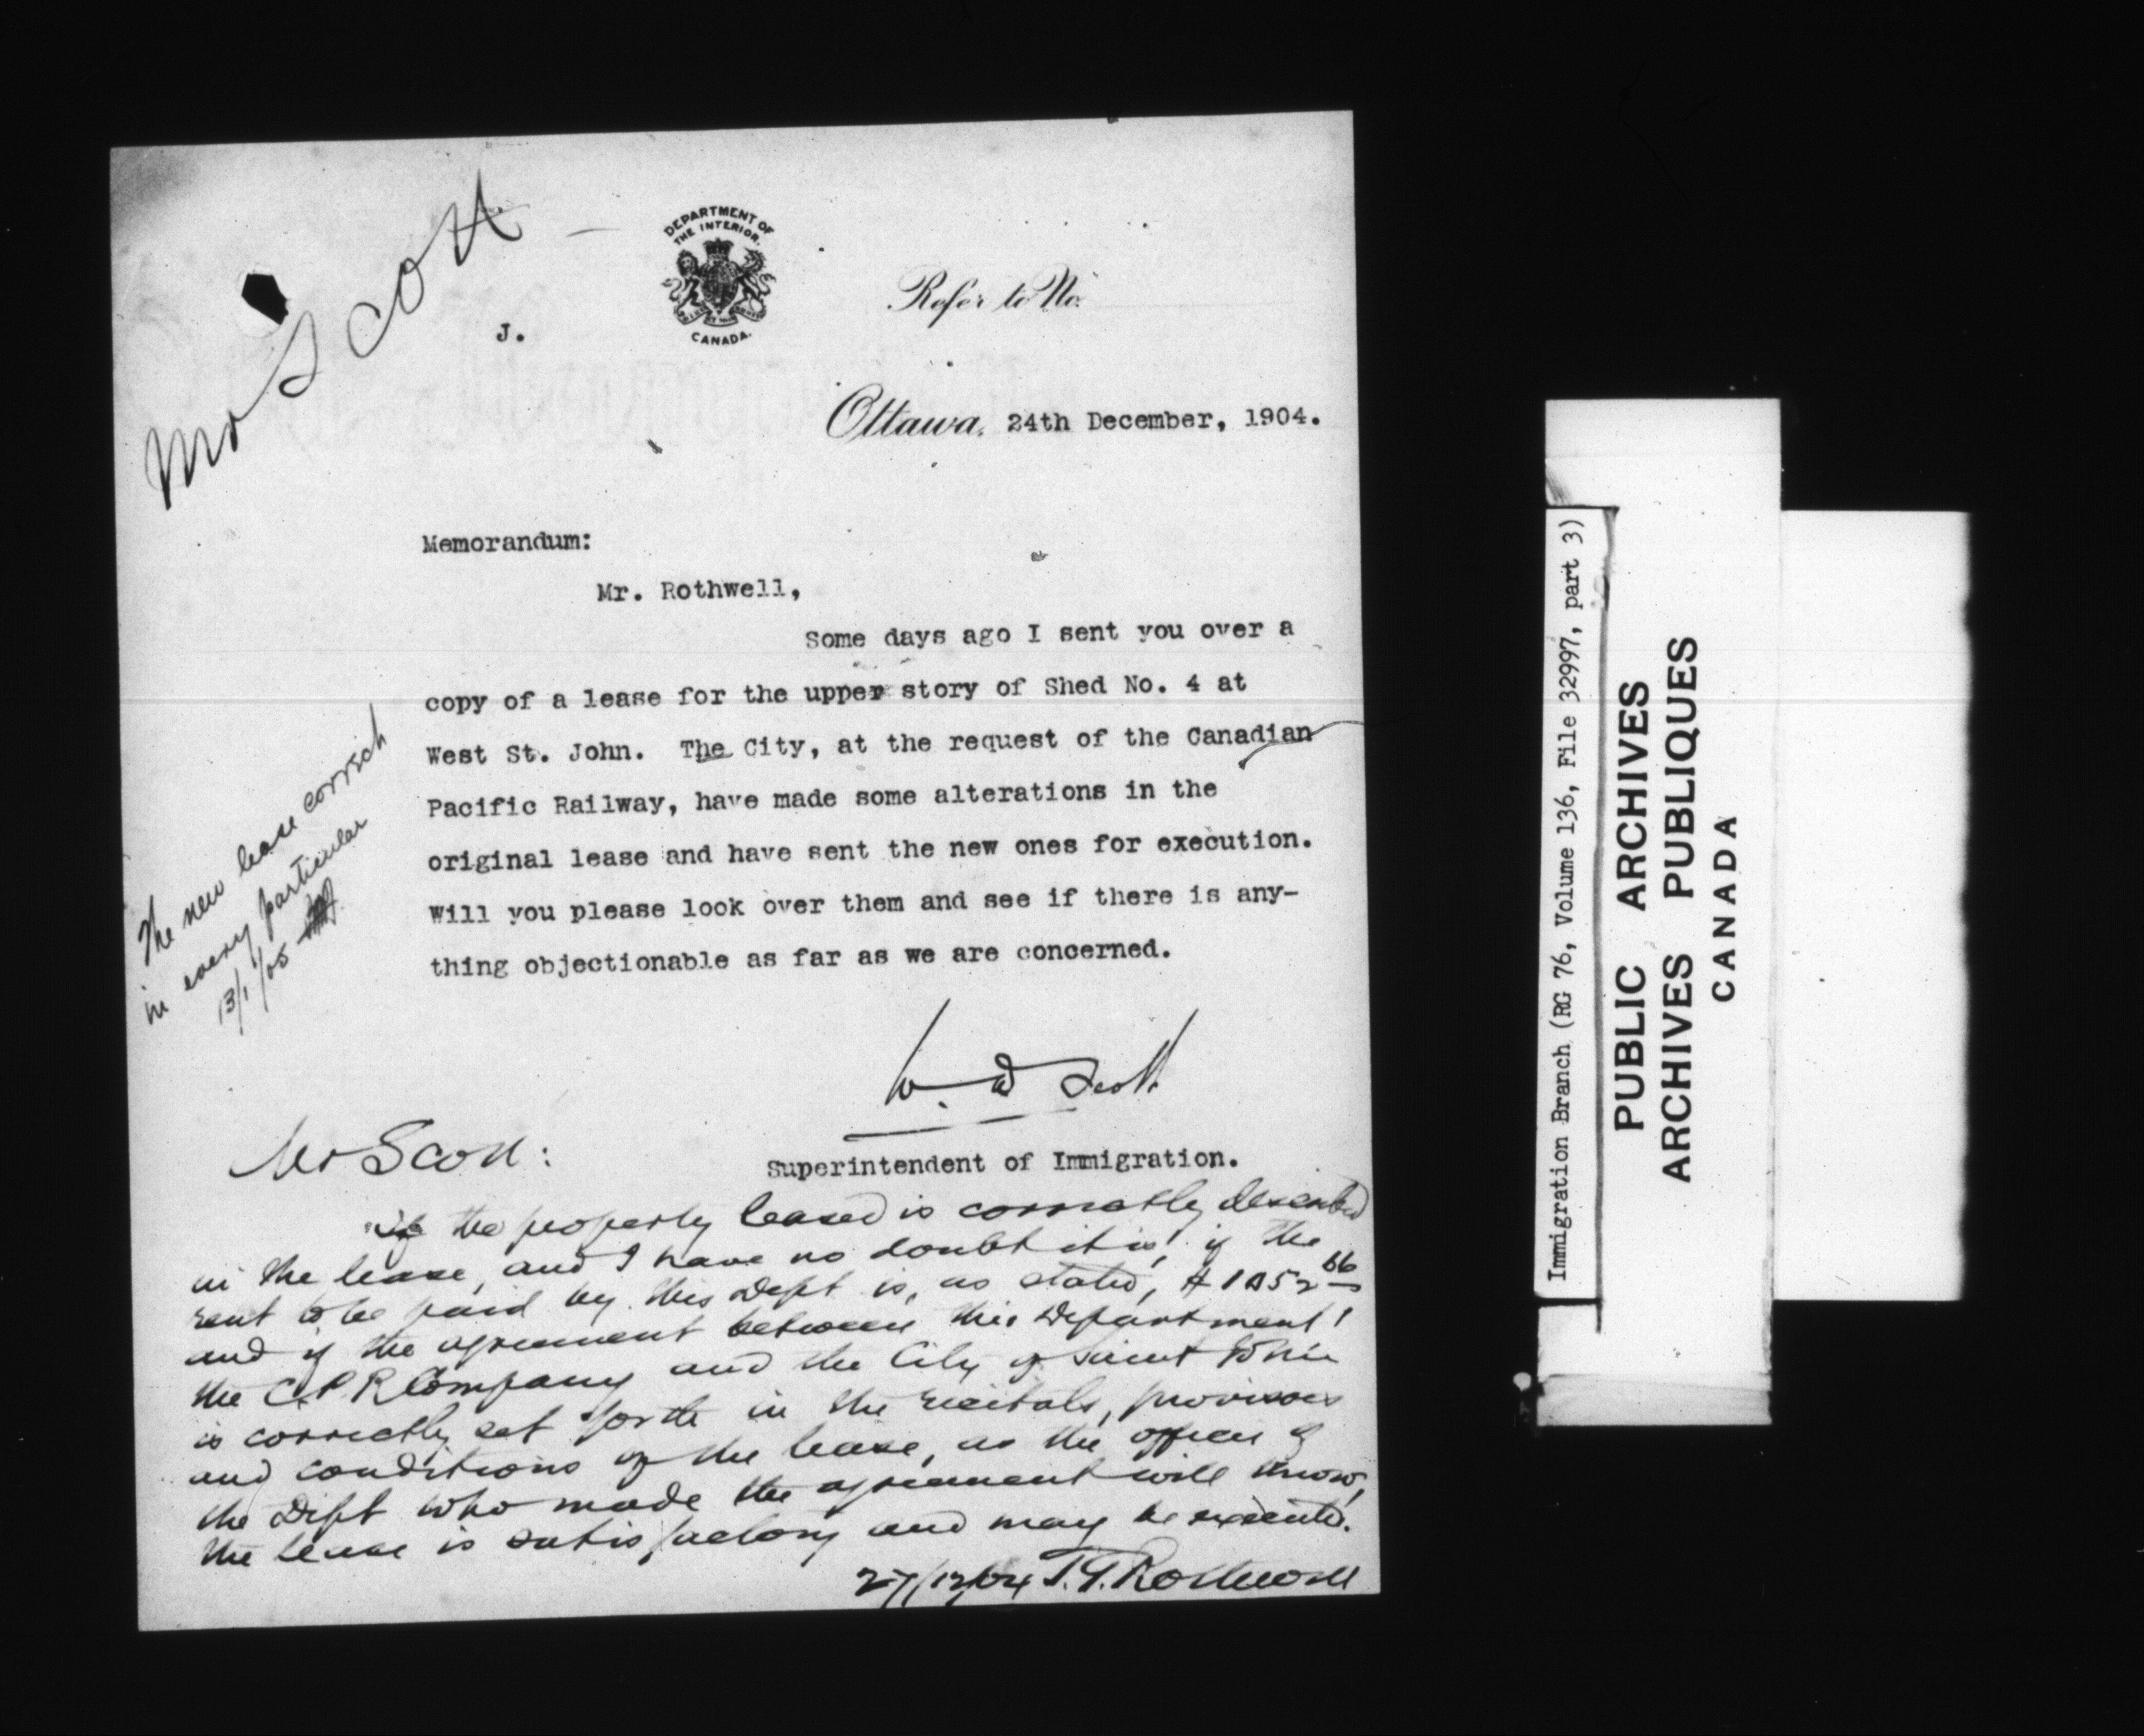 Mr Scott
DEPARTMENT OF
THE INTERIOR.
CANADA.
Refer to No.
J.
Ottawa, 24th December, 1904.
Memorandum:
Mr. Rothwell,
Some days ago I sent you over a
copy of a lease for the upper story of Shed No. 4 at
West St. John. The City, at the request of the Canadian
Pacific Railway, have made some alterations in the
original lease and have sent the new ones for execution.
Will you please look over them and see if there is any-
thing objectionable as far as we are concerned.
The new lease
in every particular
13/1/05
W. D Scott
Superintendent of Immigration.
Mr Scott:
if the property leased is correctly described
in the lease, and I have no doubt it is; if the
rent to be paid by this Dept is, as stated,
and if the agreement between this Department,
the C.P.R Company and the City of Saint John
is correctly set forth in the recitals, provisoes
and conditions of the lease, as the officer of
the Dept who made the agreement will know,
the lease is satisfactory and may be executed.
27/12/04 T.G. Rothwell
Immigration Branch (RG 76, Volume 136, File 32997, part 3)
PUBLIC ARCHIVES
ARCHIVES PUBLIQUES
CANADA